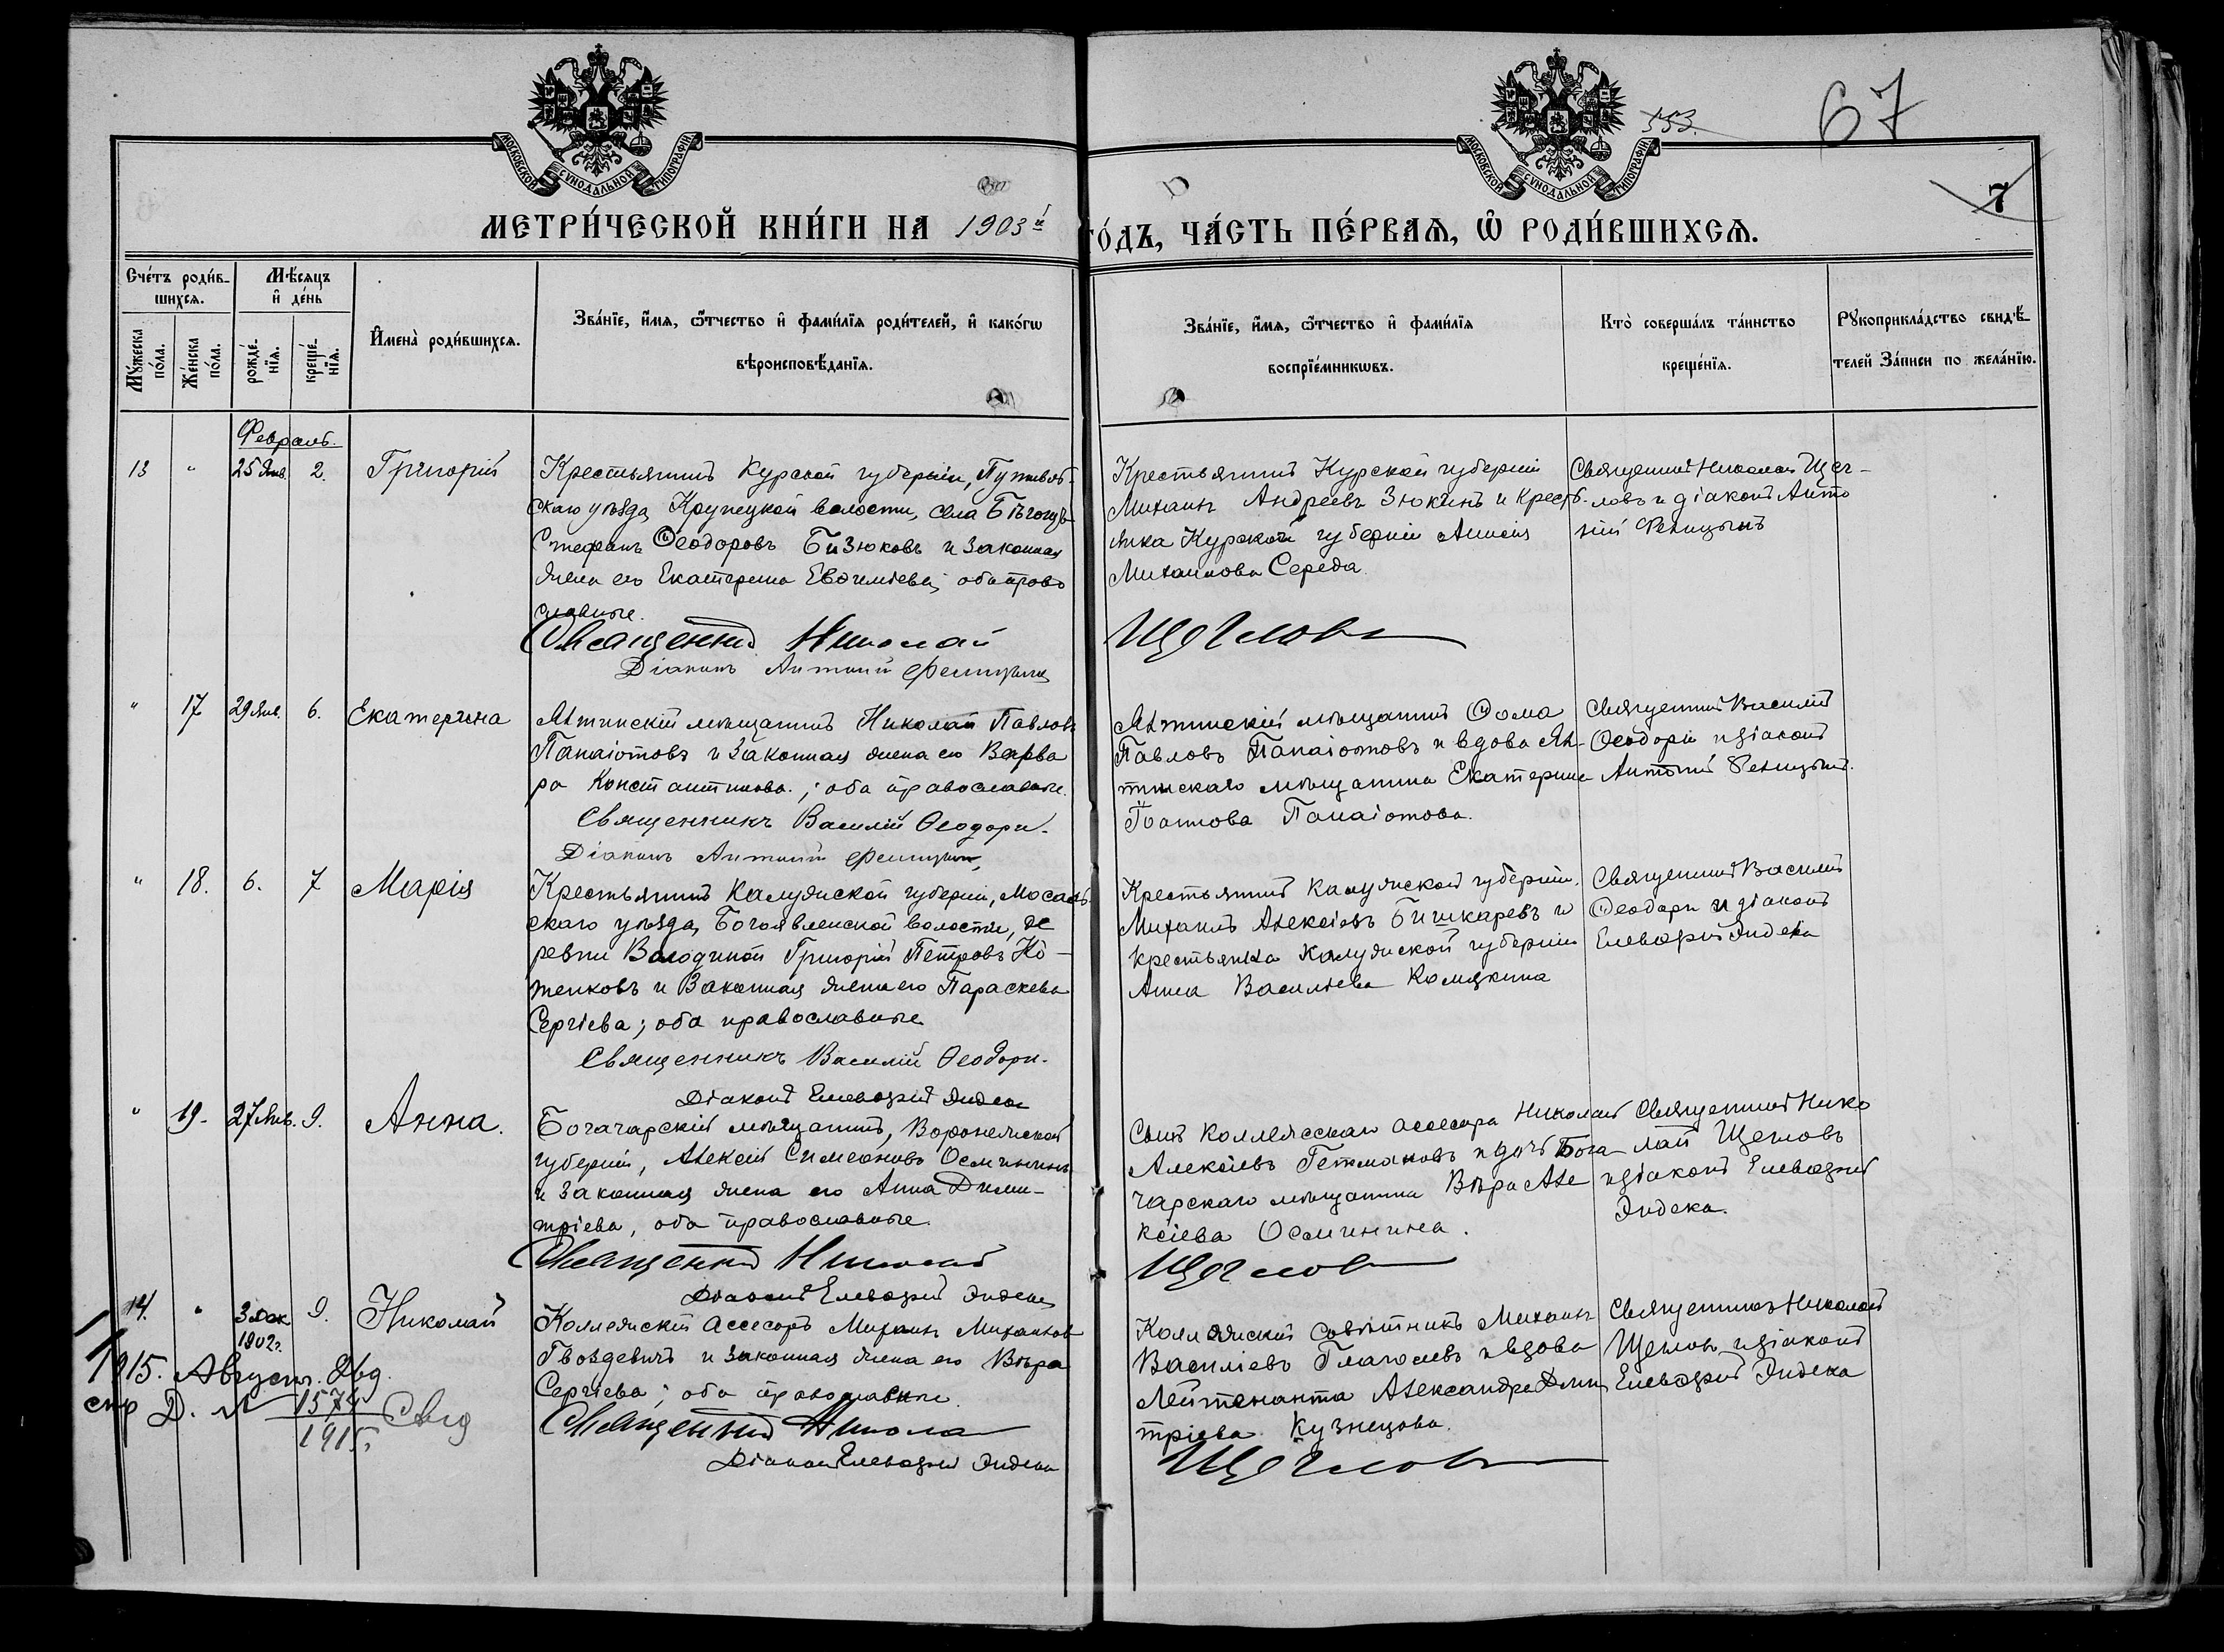 МОСКОВСКОЙ СѴНОДАЛЬНОЙ ТИПОГРАФІИ
МОСКОВСКОЙ СѴНОДАЛЬНОЙ ТИПОГРАФІИ
553.
67
7
МЕТРИ́ЧЕСКОЙ КНИ́ГИ НА 1903й
ГО́ДЪ, ЧА́СТЬ ПЕ́РВАЯ, Ѡ҆ РОДИ́ВШИХСЯ.
Сче́тъ роди́в-
шихся.
Мѣ́сяцъ
и҆ де́нь
Мꙋ́жеска по́ла.
Же́нска по́ла.
рожде́нїя.
креще́нїя.
И҆мена̀ роди́вшихся.
Зва́нїе, и҆́мя, ѻ҆́тчество и҆ фами́лїя роди́телей, и҆ како́гѡ
вѣроисповѣ́данїя.
Зва́нїе, и҆́мя, ѻ҆́тчество и҆ фами́лїя
воспрїе́мникѡвъ.
Кто̀ соверша́лъ та́инство
креще́нїя.
Рꙋкоприкла́дство свидѣ́-
телей За́писи по жела́нїю.
Февраль.
13 " 25 Янв. 2. Григорій
Крестьянинъ Курской губерніи, Путивль-
скаго уѣзда, Крупецкой волости, села
Стефанъ Ѳеодоровъ Бизюковъ и законная
жена его Екатерина Евѳиміева; оба право
славные.
Священникъ Николай
Діаконъ Антоній
Крестьянинъ Курской губерніи
Михаилъ Андреевъ Зюкинъ и крест-
янка Курской губерніи Анисія
Михаилова Середа.
Щегловъ
Священникъ Николай Щег-
ловъ и діаконъ Анто
ній
" 17 29 Янв. 6. Екатерина
Ялтинскій мѣщанинъ Николай Павловъ
Панаіотовъ и законная жена его Варва
ра Константинова.; оба православные.
Священникъ Василій Ѳеодори.
Діаконъ Антоній
Ялтинскій мѣщанинъ Ѳома
Павловъ Панаіотовъ и вдова Ял-
тинскаго мѣщанина Екатерина
Іоаннова Панаіотова.
Священникъ Василій
Ѳеодори и діаконъ
Антоній
" 18. 6. 7 Марія
Крестьянинъ Калужской губерніи, Мосаль-
скаго уѣзда, Богоявленской волости, де
ревни Володиной Григорій Петровъ Ко-
тенковъ и законная жена его Параскева
Сергіева; оба православные
Священникъ Василій Ѳеодори.
Діаконъ Елевѳерій Эндека
Крестьянинъ Калужской губерніи
Михаилъ Алексіевъ Бишкаревъ и
крестьянка Калужской губерніи
Анна Василіева Калякина
Священникъ Василій
Ѳеодори и діаконъ
Елевѳерій Эндека
" 19. 27 Янв. 9. Анна.
Богачарскій мѣщанинъ, Воронежской
губерніи, Алексій Симеоновъ Осминкинъ
и законная жена его Анна Дими-
тріева, оба православные.
Священникъ Николай
Діаконъ Елевѳерій Эндека
Сынъ Коллежскаго ассесора Николай
Алексіевъ Гетмановъ и дочь Бога
чарскаго мѣщанина Вѣра Але
ксіева Осминина.
Щегловъ
Священникъ Нико
лай Щегловъ
и діаконъ Елевѳерій
Эндека.
14. " 3 Дек 1902 г. 9. Николай
Коллежскій Ассесоръ Михаилъ Михаиловъ
Гвоздевичъ и законная жена его Вѣра
Сергіева; оба православные.
Священникъ Никола
Діаконъ Елевѳерій Эндека
Коллежскій Совѣтникъ Михаилъ
Василіевъ Глаголевъ и вдова
Лейтенанта Александра Дими
тріева Кузнецова.
Щегловъ
Священникъ Николай
Щегловъ и діаконъ
Елевѳерій Эндека
1915. Августъ.
стр Д. № 1574
1915.